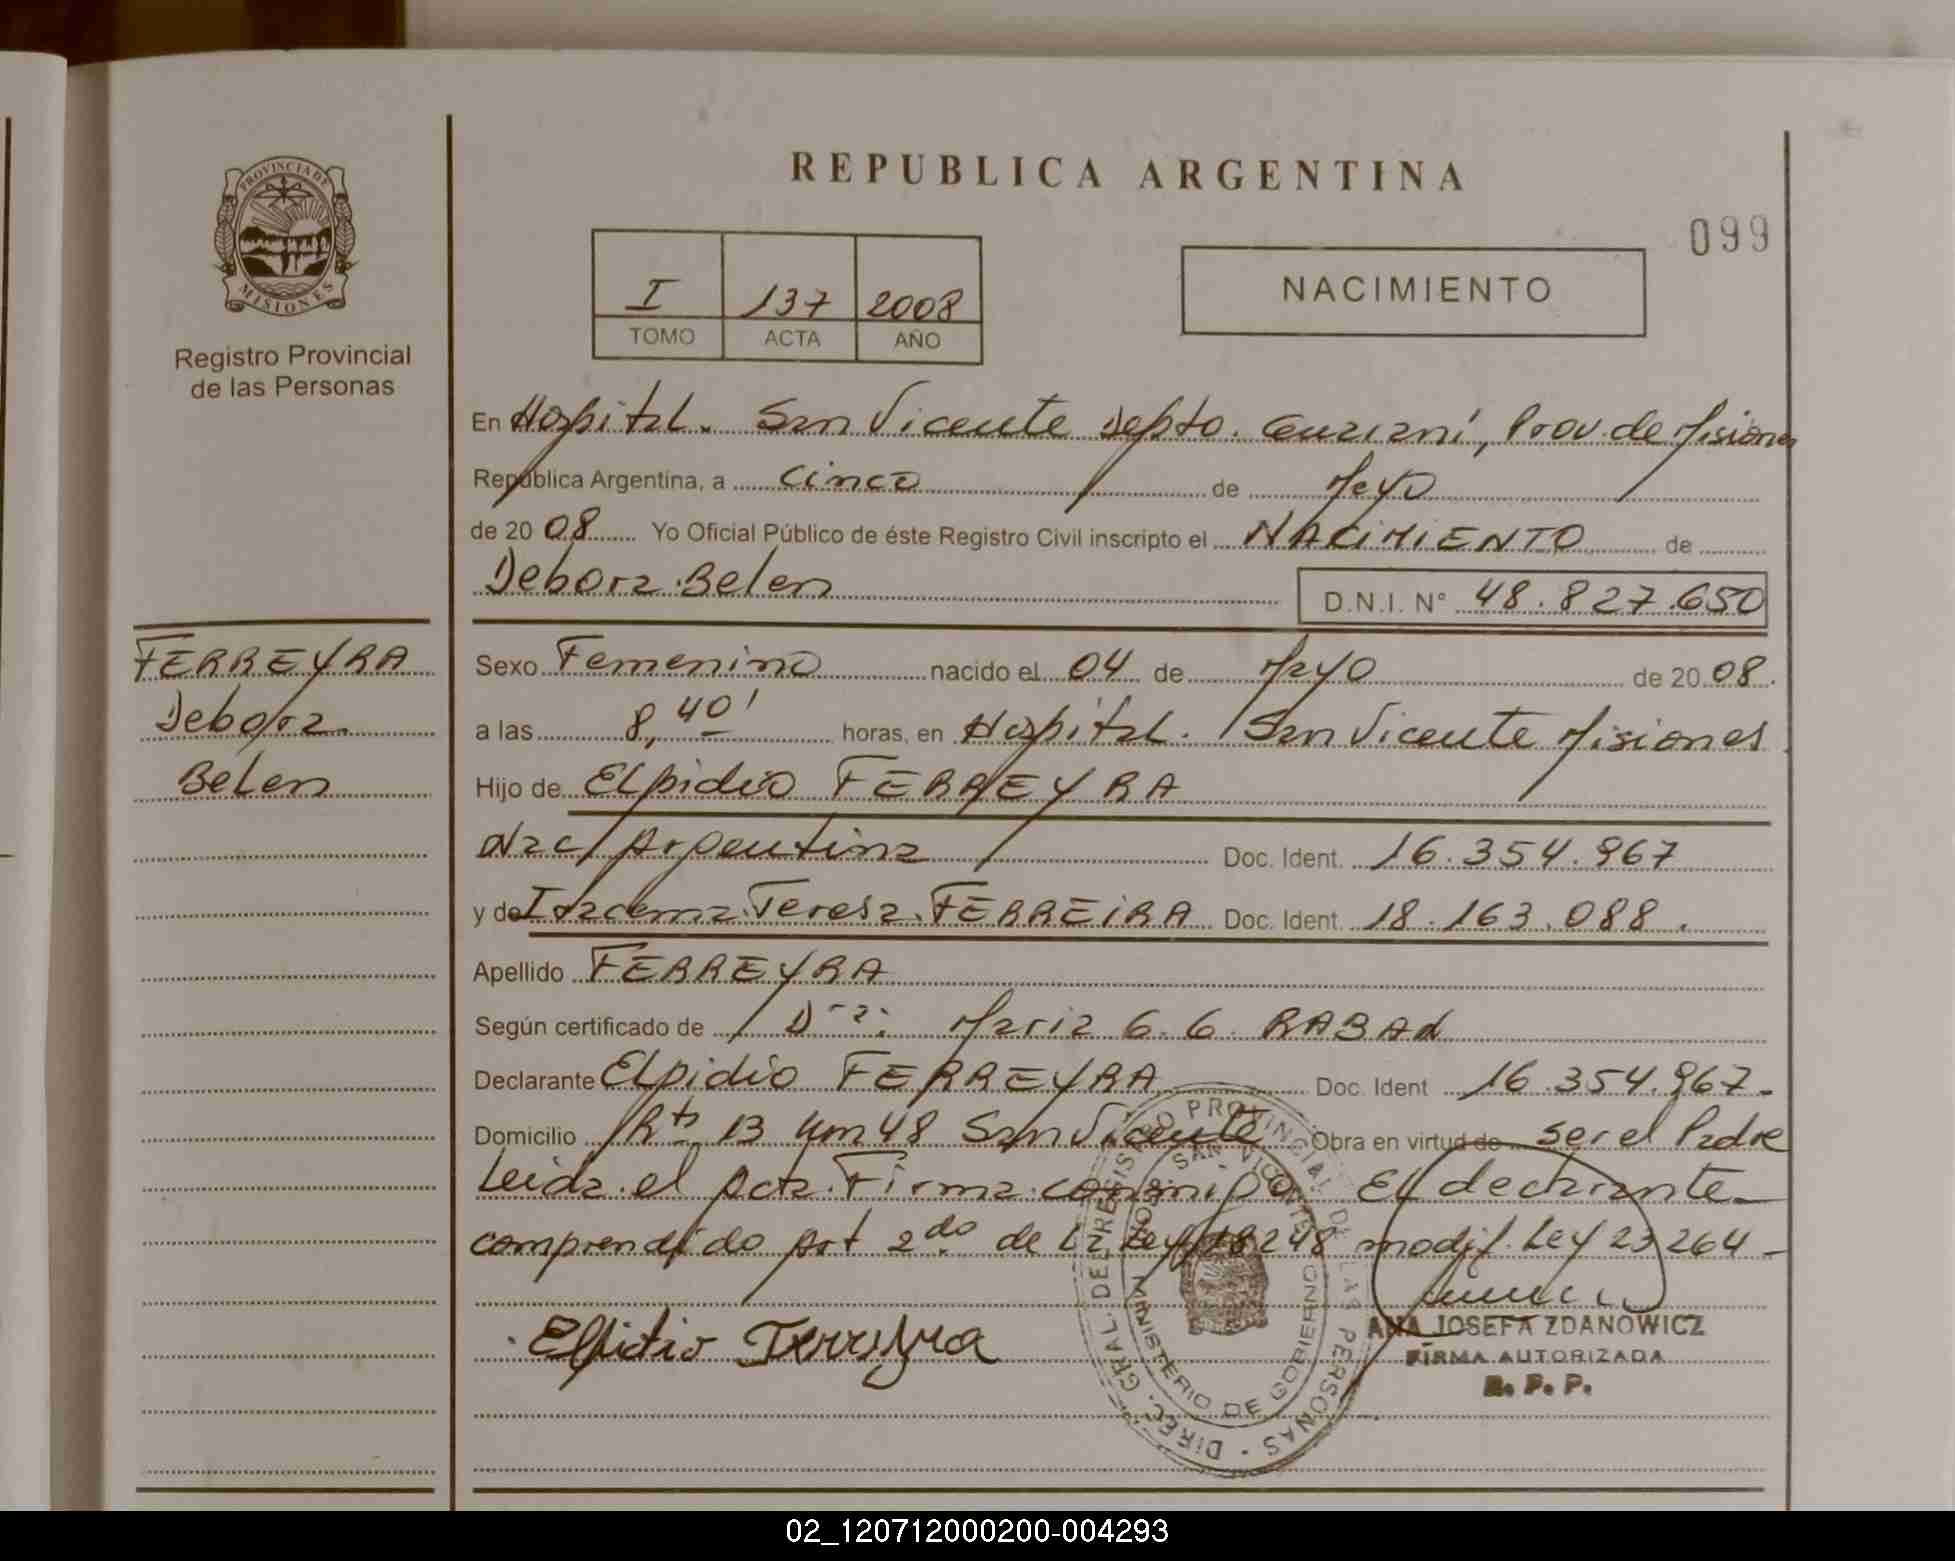 REPUBLICA ARGENTINA
099
PROVINCIA DE
MISIONES
Registro Provincial
de las Personas
I 137 2008
TOMO ACTA AÑO
NACIMIENTO
En Hospital. San Vicente Depto. Guarani, Prov. de Misiones
República Argentina, a cinco de Mayo
de 2008 Yo Oficial Público de éste Registro Civil inscripto el NACIMIENTO de
Debora Belen
D.N.I. N° 48.827.650
FERREYRA
Debora
Belen
Sexo Femenino nacido el 04 de Mayo de 2008.
a las 8,40' horas, en Hospital. San Vicente Misiones
Hijo de Elpidio FERREYRA
Nac/ Argentina Doc. Ident. 16.354.967
y de Teresa FERREIRA Doc. Ident. 18.163.088.
Apellido FERREYRA
Según certificado de Dra: Maria G. G. RABAN
Declarante Elpidio FERREYRA Doc. Ident 16.354.967-
Domicilio Rta 13 Km 48 San Vicente Obra en virtud de ser el Padre
Leida el acta Firma conmigo El declarante
comprendido Art 2do de la Ley 18248 modif. Ley 23264-
Elpidio Ferreyra
ANA JOSEFA ZDANOWICZ
FIRMA AUTORIZADA
R. P. P.
DIREC. GRAL. DEL REGISTRO PROVINCIAL DE LAS PERSONAS
SAN VICENTE
MINISTERIO DE GOBIERNO
02_120712000200-004293